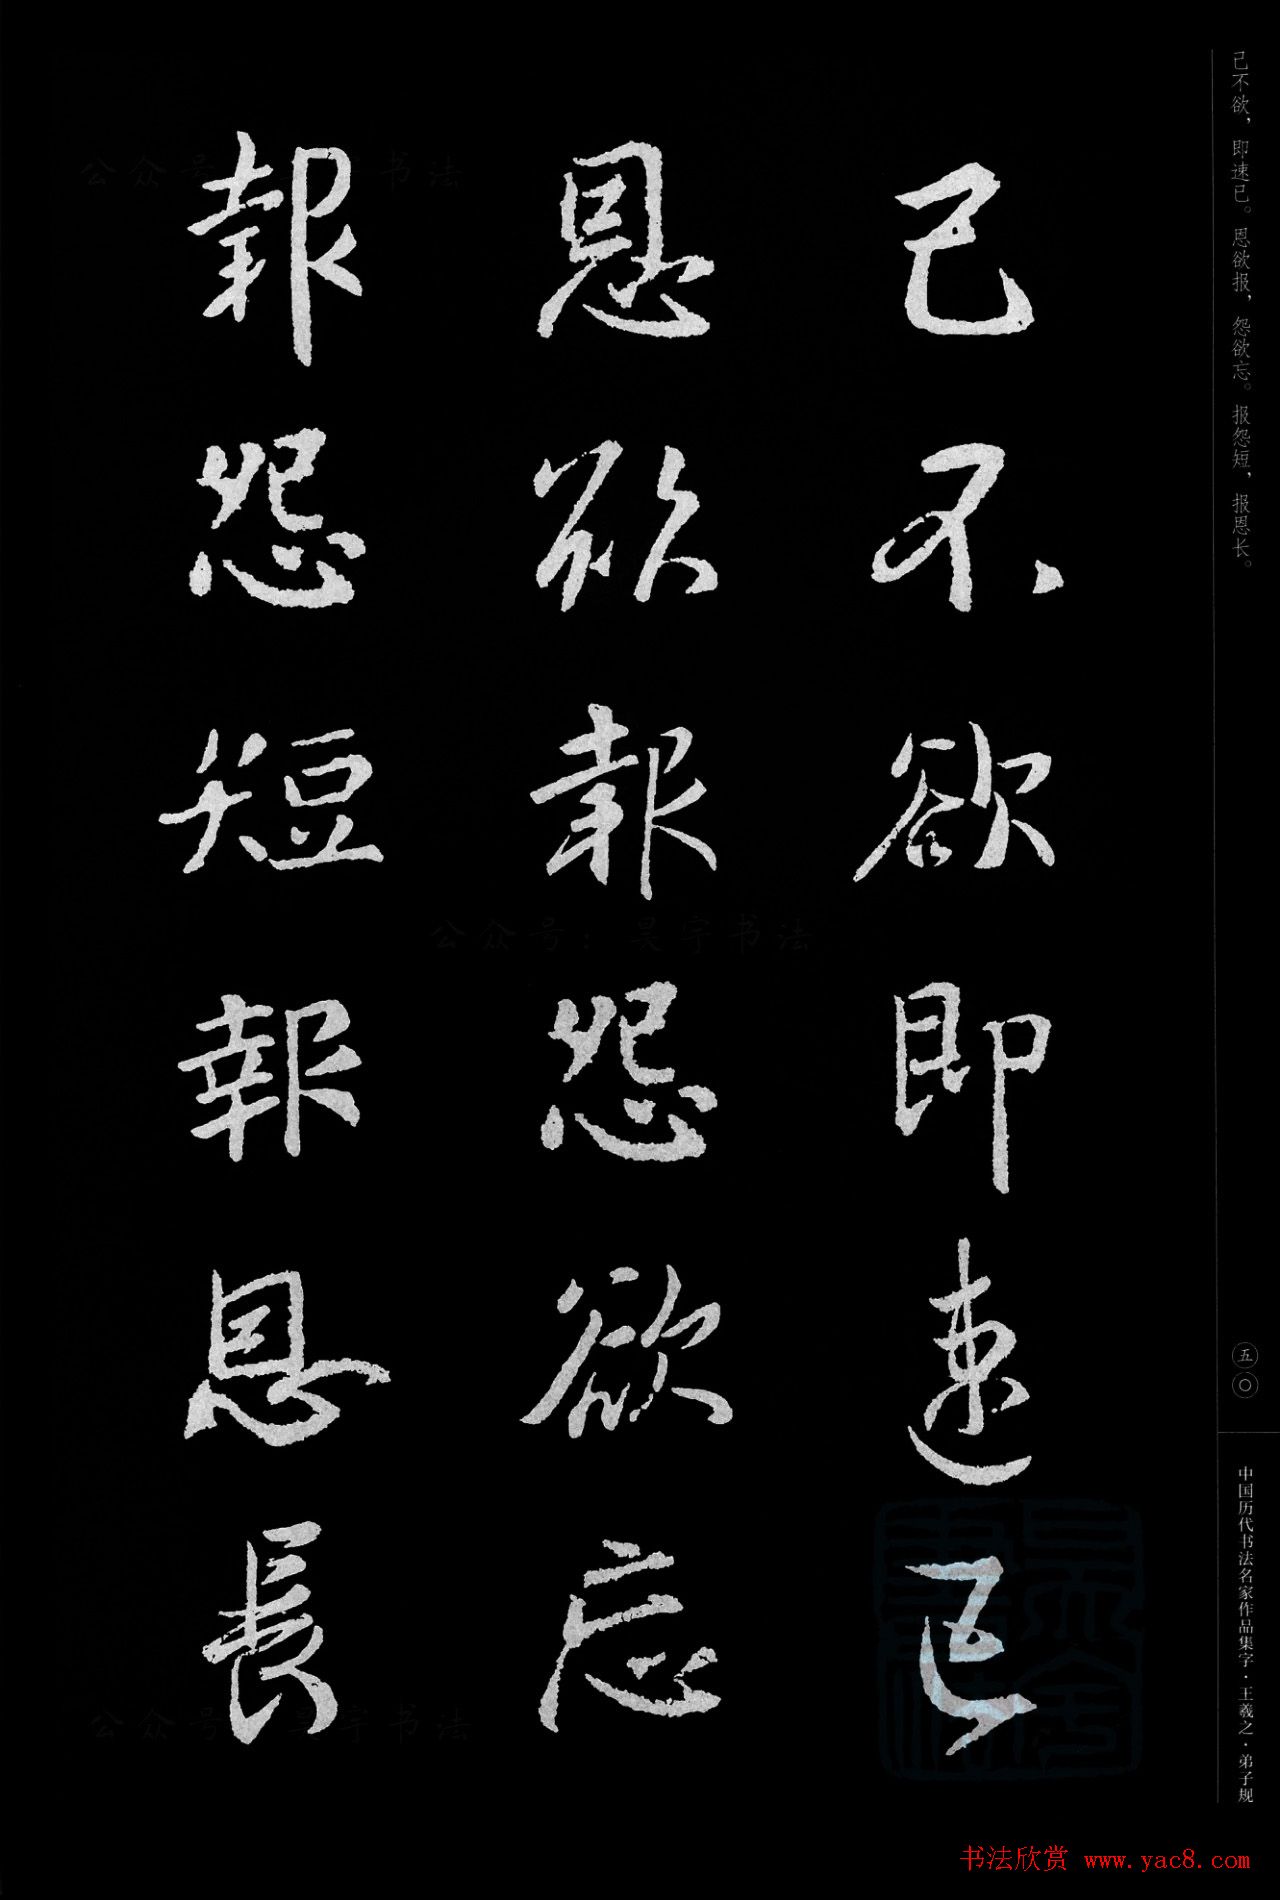 己不欲，即速已。恩欲报，怨欲忘。报怨短，报恩长。
己不欲即速已
恩欲報怨欲忘
報怨短報恩長
五〇
中国历代书法名家作品集字·王羲之·弟子规
公众号：昊宇书法
书法欣赏 www.yac8.com